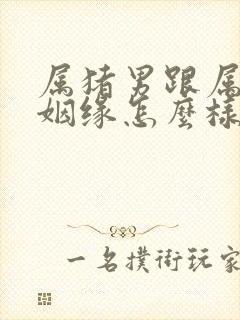 属猪男跟属
姻缘怎麽樣
一名撲術玩家